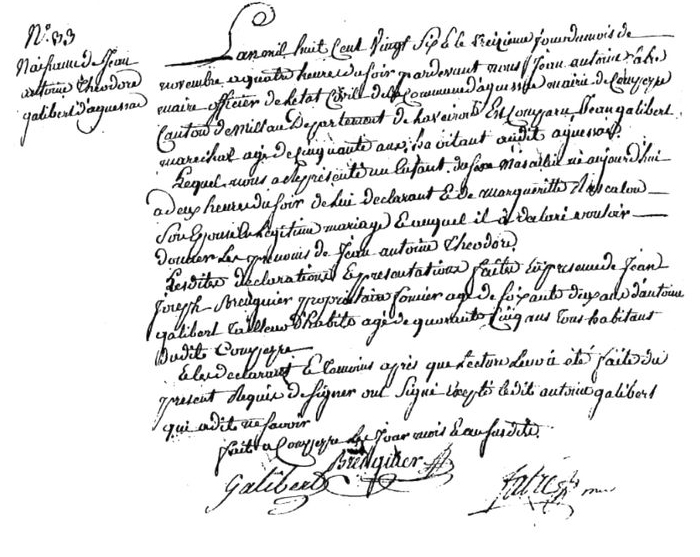 N.° 33
Naissance de Jean
antoine Theodore
galibert d'aguessac
L'an mil huit Cent Vingt Six & le treizieme Jour du mois de
novembre a quatre heure du soir pardevant nous Jean antoine fabre
maire officier de l'etat Civile de la Commune d'aguessac mairie de Compeyre
Canton de Millau Departement de laveiron Est Comparu Jean galibert
marechal agé de Cinquante ans habitant audit aguessac.
Lequel nous a representé un Enfant du sexe Masculin né aujourd'hui
a deux heure du soir de Lui declarant & de Margueritte
Son Epouse en Légitime mariage & auquel il a déclaré vouloir
donner Les prenoms de Jean antoine Theodore.
Lesdites declarations & presentations faites en presence de Jean
Joseph Breuguier proprietaire foncier agé de soixante dix ans & d'antoine
galibert tailleur D'habits agé de quarante Cinq ans tous habitant
dudit Compeyre
& les declarant & temoins après que Lecture Leur à été faite du
present Requis de signer ont Signé Excepté ledit antoine galibert
qui a dit ne savoir
fait a Compeyre Les Jour mois & an susdits.
Breuguier
Galibert fabre